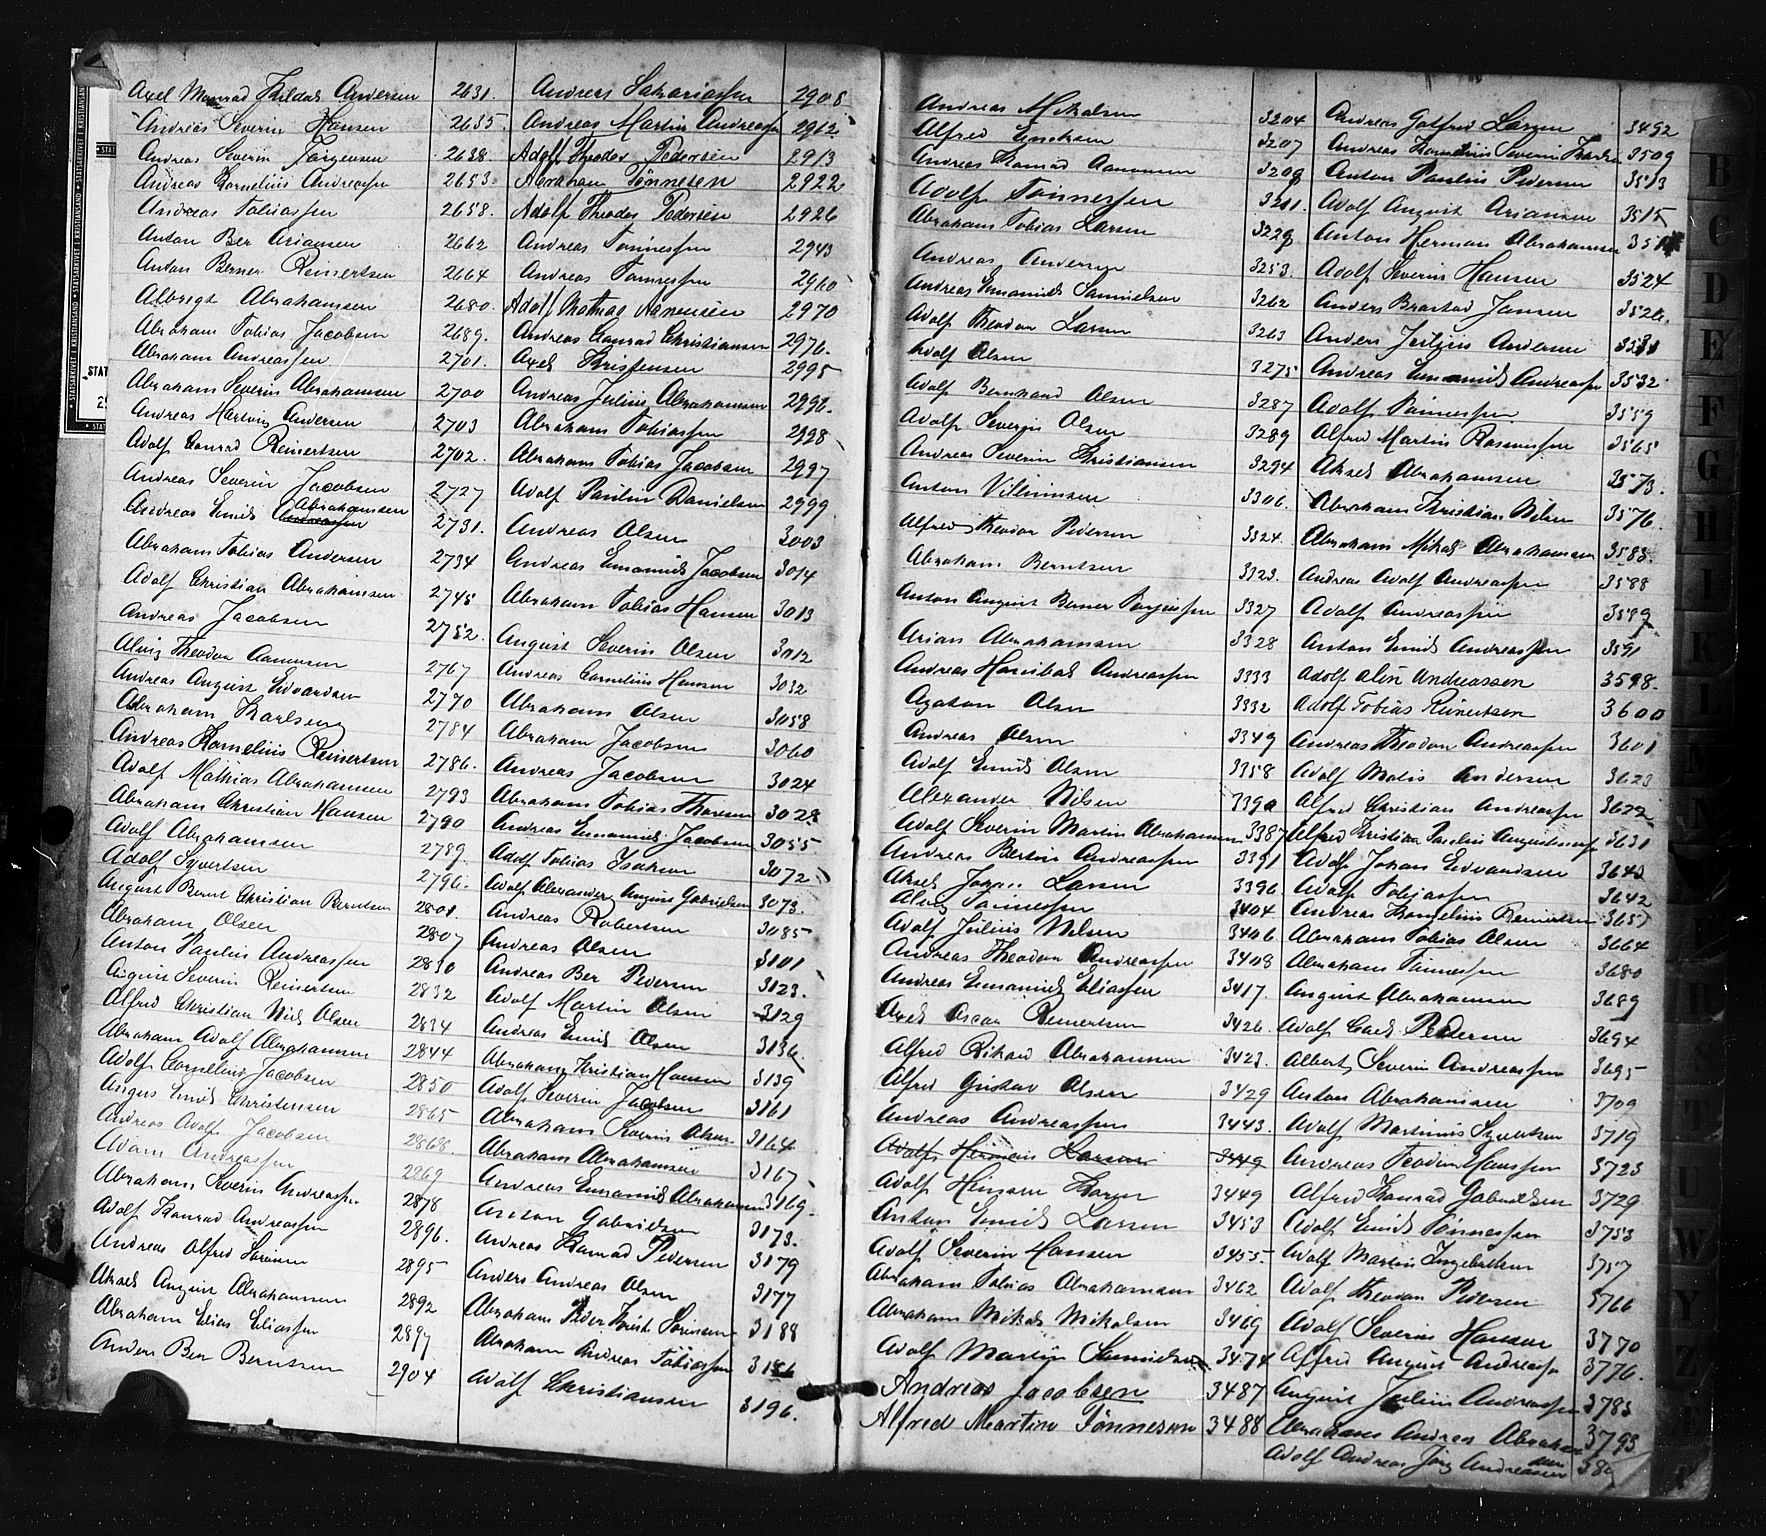 Axel Monrad Thildal Andersen 2631.
Andreas Severin Hansen 2635.
Andreas Severin Jørgensen 2638.
Andreas Kornelius Andreassen 2653.
Andreas Tobiassen 2658.
Anton Ber Ariansen 2662
Anton Berner Reinertsen 2664
Albregt Abrahamsen 2680.
Abraham Tobias Jacobsen 2689.
Abraham Andreassen 2701.
Abraham Severin Abrahamsen 2700
Andreas Hartvig Andersen 2703
Adolf Conrad Reinertsen 2702.
Andreas Severin Jacobsen 2727
Andreas Emil Abrahamsen 2731.
Abraham Tobias Andersen 2734
Adolf Christian Abrahamsen 2745
Andreas Jacobsen 2752.
Alviz Theodor Aanensen 2767
Andreas August Edvardsen 2770
Abraham Karlsen 2784
Andreas Kornelius Reinertsen 2786.
Adolf Mathias Abrahamsen 2793
Abraham Christian Hansen 2790
Adolf Abrahamsen 2789.
Adolf Syvertsen 2796.
August Bernt Christian Berntsen 2801.
Abraham Olsen 2807
Anton Paulin Andreassen 2830
August Severin Reinertsen 2832
Alfred Christian Niels Olsen 2834
Abraham Adolf Abrahamsen 2844
Adolf Cornelius Jacobsen 2850
August Emil Christensen 2865
Andreas Adolf Jacobsen 2868.
Adam Andreassen 2869
Abraham Severin Andreassen 2878
Adolf Konrad Andreassen 2896.
Andreas Alfred Sørensen 2895
Aksel August Abrahamsen 2892
Abraham Elias Eliassen 2897
Anders Ber Berntsen 2904
Andreas Sakariassen 2908
Andreas Martin Andreassen 2962
Adolf Theodor Pedersen 2913
Abraham Tønnesen 2922
Adolf Theodor Pedersen 2926
Andreas Tønnessen 2943
Andreas Tønnessen 2960
Adolf Mathias Aanensen 2970
Andreas Conrad Christiansen 2976.
Axel Kristensen 2995
Andreas Julius Abrahamsen 2996.
Abraham Tobiassen 2998
Abraham Tobias Jacobsen 2997
Adolf Paulin Danielsen 2999
Andreas Olsen 3003
Andreas Emanuel Jacobsen 3014
Abraham Tobias Hansen 3013
August Severin Olsen 3012
Andreas Cornelius Hansen 3032
Abraham Olsen 3058
Abraham Jacobsen 3060
Andreas Jacobsen 3024
Abraham Tobias Thorsen 3028
Andreas Emanuel Jacobsen 3055
Adolf Tobias Isaksen 3072
Adolf Alexander August Gabrielsen 3073.
Andreas Robertsen 3085
Andreas Olsen 3101
Andreas Ber Pedersen 3123.
Adolf Martin Olsen 3129
Andreas Emil Olsen 3136.
Abraham Kristian Hansen 3139
Adolf Severin Jacobsen 3161
Abraham Severin Olsen 3164
Abraham Abrahamsen 3167
Andreas Emanuel Abrahamsen 3169.
Anton Gabrielsen 3173.
Andreas Konrad Pedersen 3179
Anders Andreas Olsen 3177
Abraham Peder Krist. Sørensen 3188
Abraham Andreas Tobiassen 3186
Adolf Christiansen 3196.
Andreas Mikalsen 3204
Alfred Eriksen 3207
Andreas Konrad Aanensen 3208
Adolf Tønnessen 3211.
Abraham Tobias Larsen 3229
Andreas Andersen 3253.
Andreas Emanuel Samuelsen 3262
Adolf Theodor Larsen 3263
Adolf Olsen 3275
Adolf Bernhard Olsen 3287
Adolf Severin Olsen 3289
Andreas Severin Kristiansen 3294
Anton Vilumsen 3306.
Alfred Theodor Pedersen 3324.
Abraham Berntsen 3323.
Anton August Berner Torjussen 3327
Arian Abrahamsen 3328
Andreas Hanibal Andreassen 3333
Agaton Olsen 3332
Andreas Olsen 3349
Adolf Emil Olsen 3358
Alexander Nilsen 3390
Adolf Severin Martin Abrahamsen 3387
Andreas Bertin Andreassen 3391
Aksel Johan Larsen 3396
Alviz Tønnessen 3404
Adolf Julius Nilsen 3406
Andreas Theodor Andreassen 3408
Andreas Emanuel Eliassen 3417.
Axel Oscar Reinertsen 3426.
Alfred Rikard Abrahamsen 3423.
Alfred Gustav Olsen 3429
Andreas Andreassen 3443.
Adolf Herman Larsen 3449
Adolf Hansen Larsen 3449
Anton Emil Larsen 3453
Adolf Severin Hansen 3455.
Abraham Tobias Abrahamsen 3462
Abraham Mikal Mikalsen 3469
Adolf Martin Samuelsen 3474
Andreas Jacobsen 3487
Alfred Martin Tønnesen 3488
Andreas Gotfred Larsen 3492
Andreas Kornelius Severin 3509
Anton Paulin Pedersen 3513
Adolf August Ariansen 3515
Anton Herman Abrahamsen
Adolf Severin Hansen 3524
Anders Brastad Jansen 3526.
Anders Jørgen Andersen
Andreas Emanuel Andreassen 3532
Adolf Tønnessen 3559
Alfred Martin Rasmussen 3565
Aksel Abrahamsen 3573.
Abraham Kristian Nilsen 3576.
Abraham Mikal Abrahamsen 3583.
Andreas Adolf Andreassen 3588
Adolf Andreassen 3589
Anton Emil Andreassen 3591
Adolf Olin Andreassen 3598.
Adolf Tobias Reinertsen 3600
Andreas Theodor Andreassen 3601
Adolf Matis Andersen 3623
Alfred Christian Andreassen 3622
Alfred Kristian Paulin Augustinussen 3631
Adolf Johan Edvardsen 3643
Adolf Tobiassen 3642
Andreas Kornelius Reinertsen 3657
Abraham Tobias Olsen 3664
Abraham Tønnessen 3680
August Abrahamsen 3689
Adolf Carl Pedersen 3694
Albert Severin Andreassen 3695
Anton Abrahamsen 3709
Adolf Martinius Syvertsen 3719
Andreas Teodor Hanssen 3723
Alfred Konrad Gabrielsen 3729
Adolf Emil Tønnessen 3753
Adolf Martin Ingebretsen 3757
Adolf Theodor Pedersen 3766
Adolf Severin Hansen 3770
Alfred August Andreassen 3776.
August Julius Andreassen 3783
Abraham Andreas Abrahamsen 3793
Adolf Andreas Jørg Andreassen
B
C
D
E
F
G
H
I
K
L
T
U
W
Y
Z